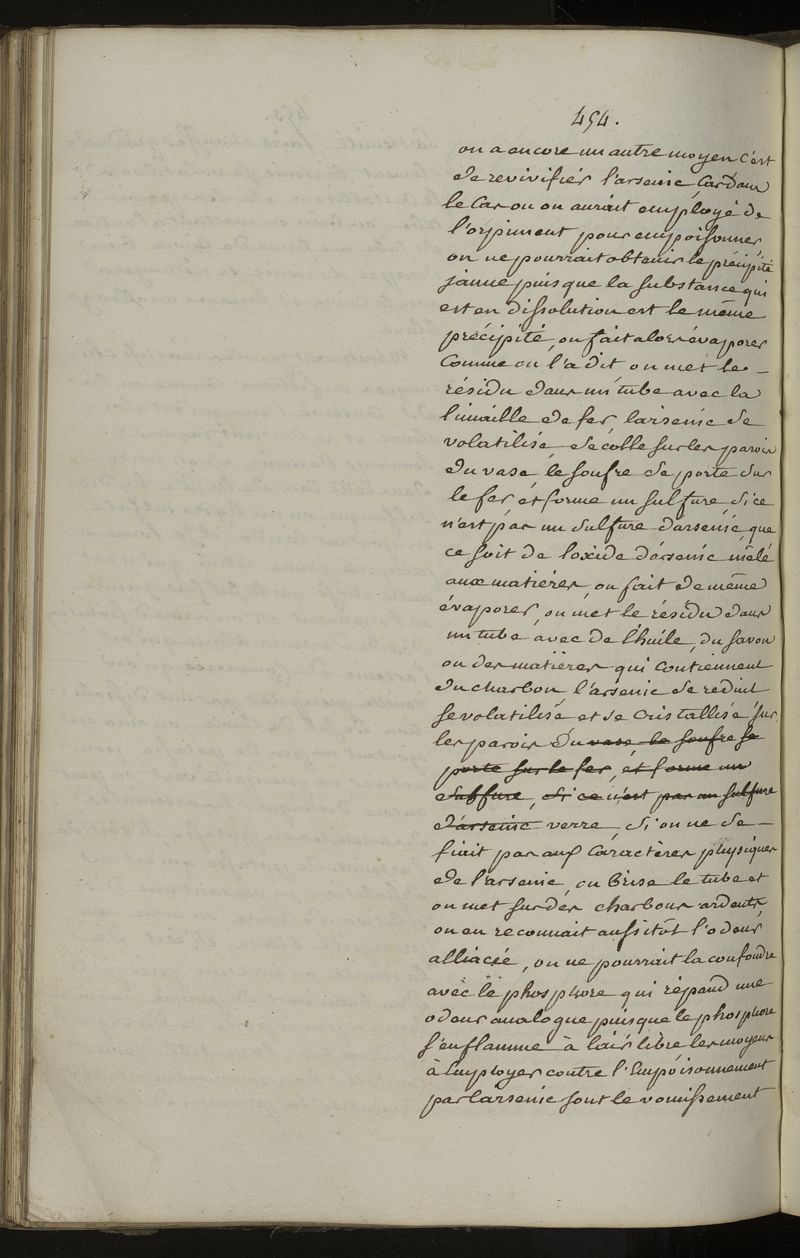 454.
on a encore un autre moyen c'est
de revivifier l'arsenic car dans
le cas ou on aurait employé de
l'orpiment pour empoisonner
on ne pourrait obtenir le précipité
jaune puisque la substance qui
est en dissolution est le même
précipité, on fait alors évaporer
comme on l'a dit, on met le
résidu dans un tube avec la
limaille de fer, larsenic se
volatilise, se colle sur les parois
du vase, le soufre se porte sur
le fer et forme un sulfure, si ce
n'est pas un sulfure d'arsenic, que
ce soit de loxide d'arsenic mêlé
aux matières, on fait de même
évaporer, on met le résidu dans
un tube avec de l'huile, du savon
ou des matières qui contiennent
du charbon, l'arsenic se reduit
se volatilise et se cristallise sur
les parois du vase le soufre se
porte sur le fer, et forme un
sulfure, si ce n'est pas un sulfure
d'arsenic verre, si on ne se
fiait pas aux caractères physiques
de l'arsenic, on brise le tube et
on met sur des charbons ardents,
on en reconnait aussitôt l'odeur
alliacée, on ne pourrait la confondre
avec le phosphore qui répand une
odeur analogue puisque le phosphore
s'enflamme à l'air libre les moyens
à employer contre l'empoisonnement
par larsenic sont le vomissement